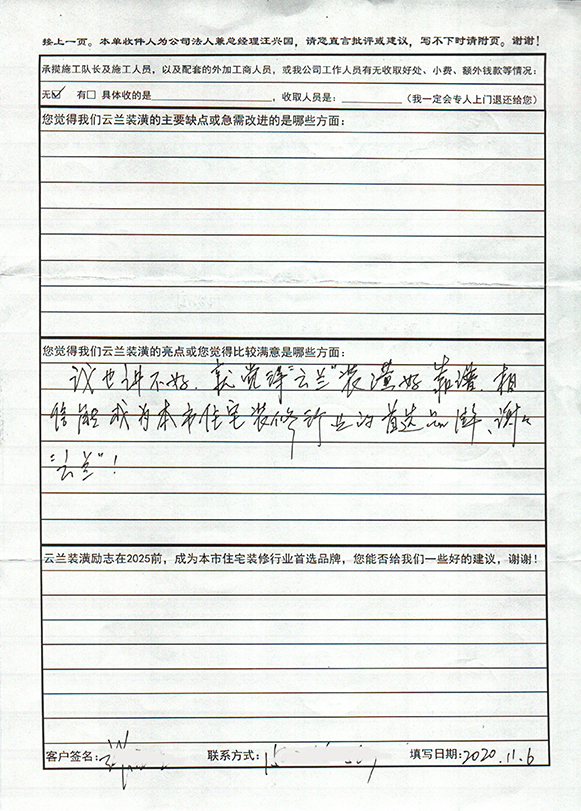 接上一页。本单收件人为公司法人兼总经理汪兴国，请您直言批评或建议，写不下时请附页。谢谢！
承揽施工队长及施工人员，以及配套的外加工商人员，或我公司工作人员有无收取好处、小费、额外钱款等情况：
无☑ 有□ 具体收的是____________________，收取人员是：__________（我一定会专人上门退还给您）
您觉得我们云兰装潢的主要缺点或急需改进的是哪些方面：
您觉得我们云兰装潢的亮点或您觉得比较满意是哪些方面：
议也讲不好、就觉得“云兰”装潢好靠谱、相
信能成为本市住宅装修行业的首选品牌、谢谢
“云兰”！
云兰装潢励志在2025前，成为本市住宅装修行业首选品牌，您能否给我们一些好的建议，谢谢！
客户签名： 联系方式： 填写日期：2020.11.6